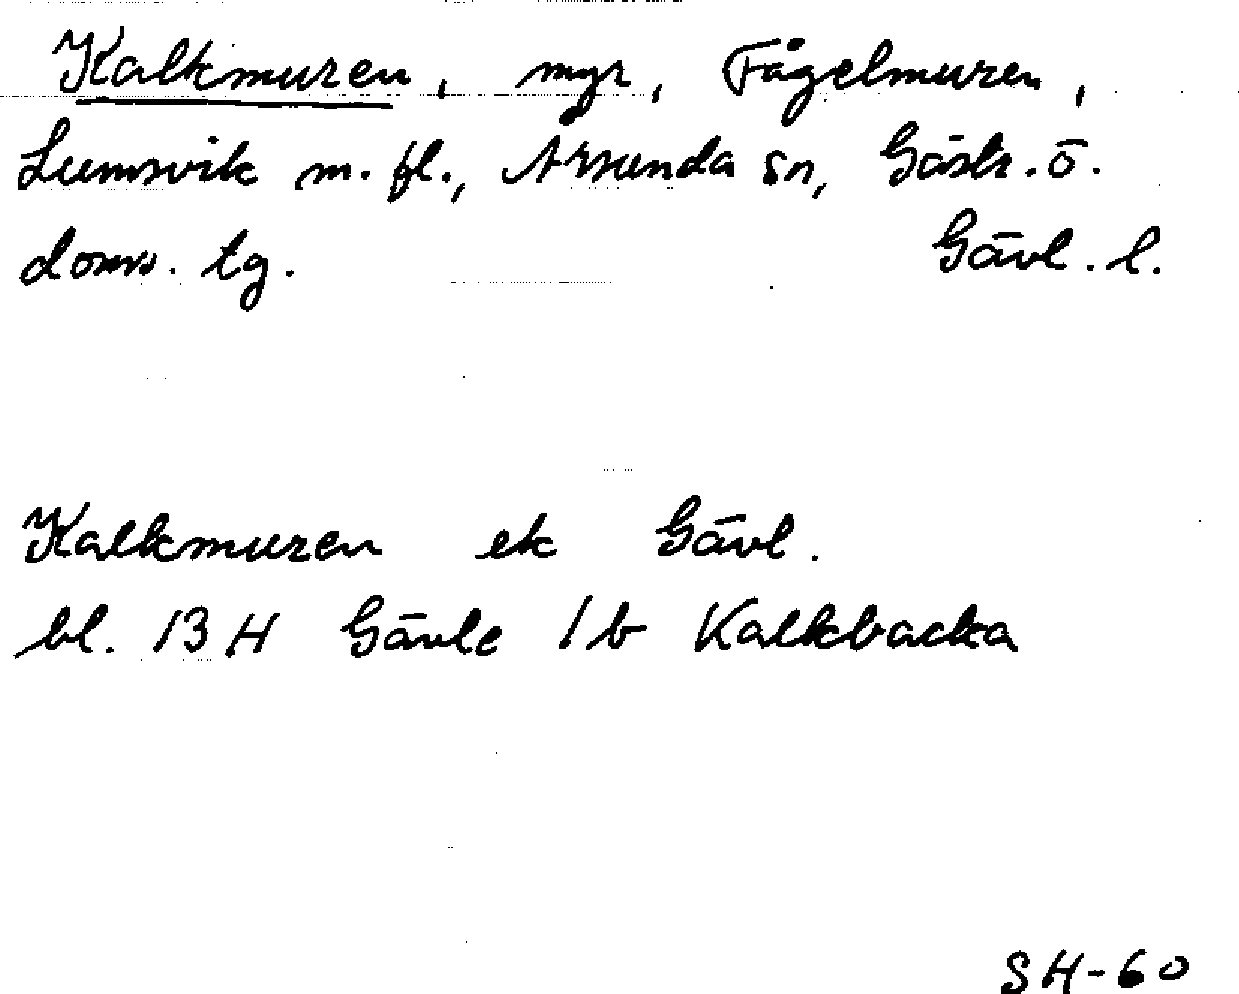 Kalkmuren, myr, Fågelmuren,
Lumsvik m. fl., Årsunda sn, Gästr. ö.
doms. tg. Gävl. l.
Kalkmuren ek Gävl.
bl. 13 H Gävle 1 b Kalkbacka
SH-60